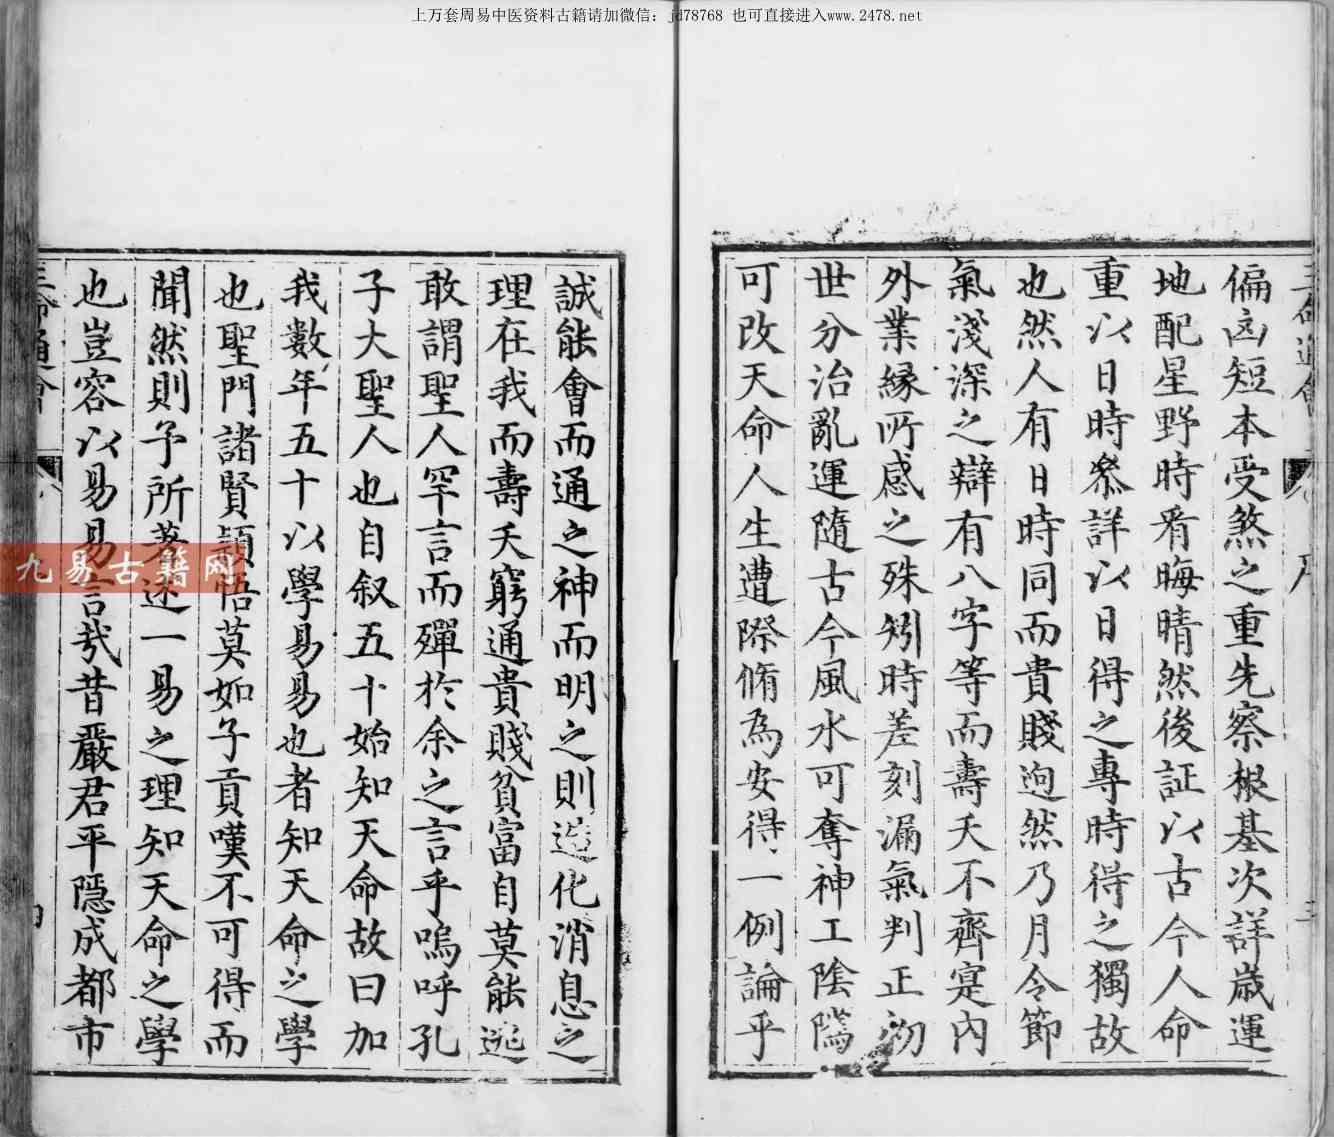 上万套周易中医资料古籍请加微信：jd78768 也可直接进入www.2478.net
三命通會
序
三
偏凶短本受煞之重先察根基次詳歲運
地配星野時看晦晴然後証以古今人命
重以日時叅詳以日得之專時得之獨故
也然人有日時同而貴賤逈然乃月令節
氣淺深之辯有八字等而壽夭不齊寔內
外業緣所感之殊矧時差刻漏氣判正初
世分治亂運隨古今風水可奪神工陰隲
可改天命人生遭際脩為安得一例論乎
誠能會而通之神而明之則造化消息之
理在我而壽夭窮通貴賤貧富自莫能逃
敢謂聖人罕言而殫於余之言乎嗚呼孔
子大聖人也自叙五十始知天命故曰加
我數年五十以學易易也者知天命之學
也聖門諸賢頴悟莫如子貢嘆不可得而
聞然則予所著述一易之理知天命之學
也豈容以易易言哉昔嚴君平隱成都市
三命通會
九易古籍网